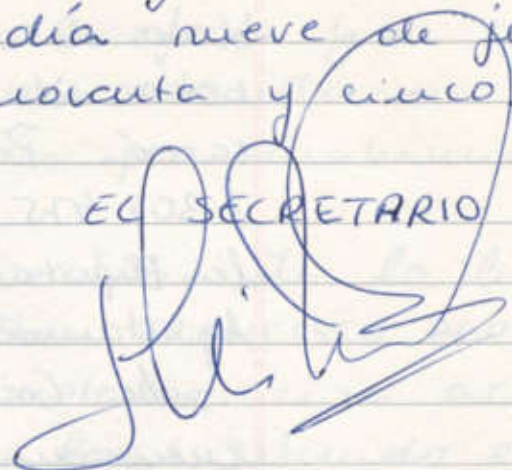 día nueve de
noventa y cinco
EL SECRETARIO